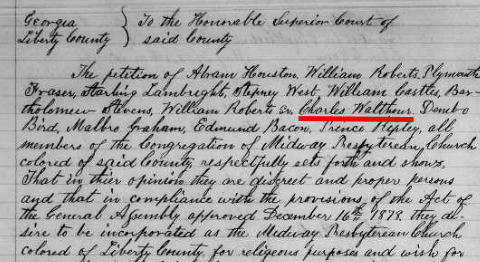 Georgia } To the Honorable Superior Court of
Liberty County } said County
The petition of Abram Houston, William Roberts, Plymouth
Fraser, Starling Lambright, Stepney West, William Castles, Bar-
tholomew Stevens, William Robert Sr, Charles Walthour, Dembo
Bird, Malbro Graham, Edmund Bacon, Prince Ripley, all
members of the Congregation of Midway Presbyterean Church
colored of said County, respectfully sets forth and shows,
That in thier opinion they are discreet and proper persons
and that in compliance with the provisions of the Act of
the General Assembly approved December 16th 1878, they de-
sire to be incorporated as the Midway Presbyterean Church
colored of Liberty County for religeous purposes and wish for